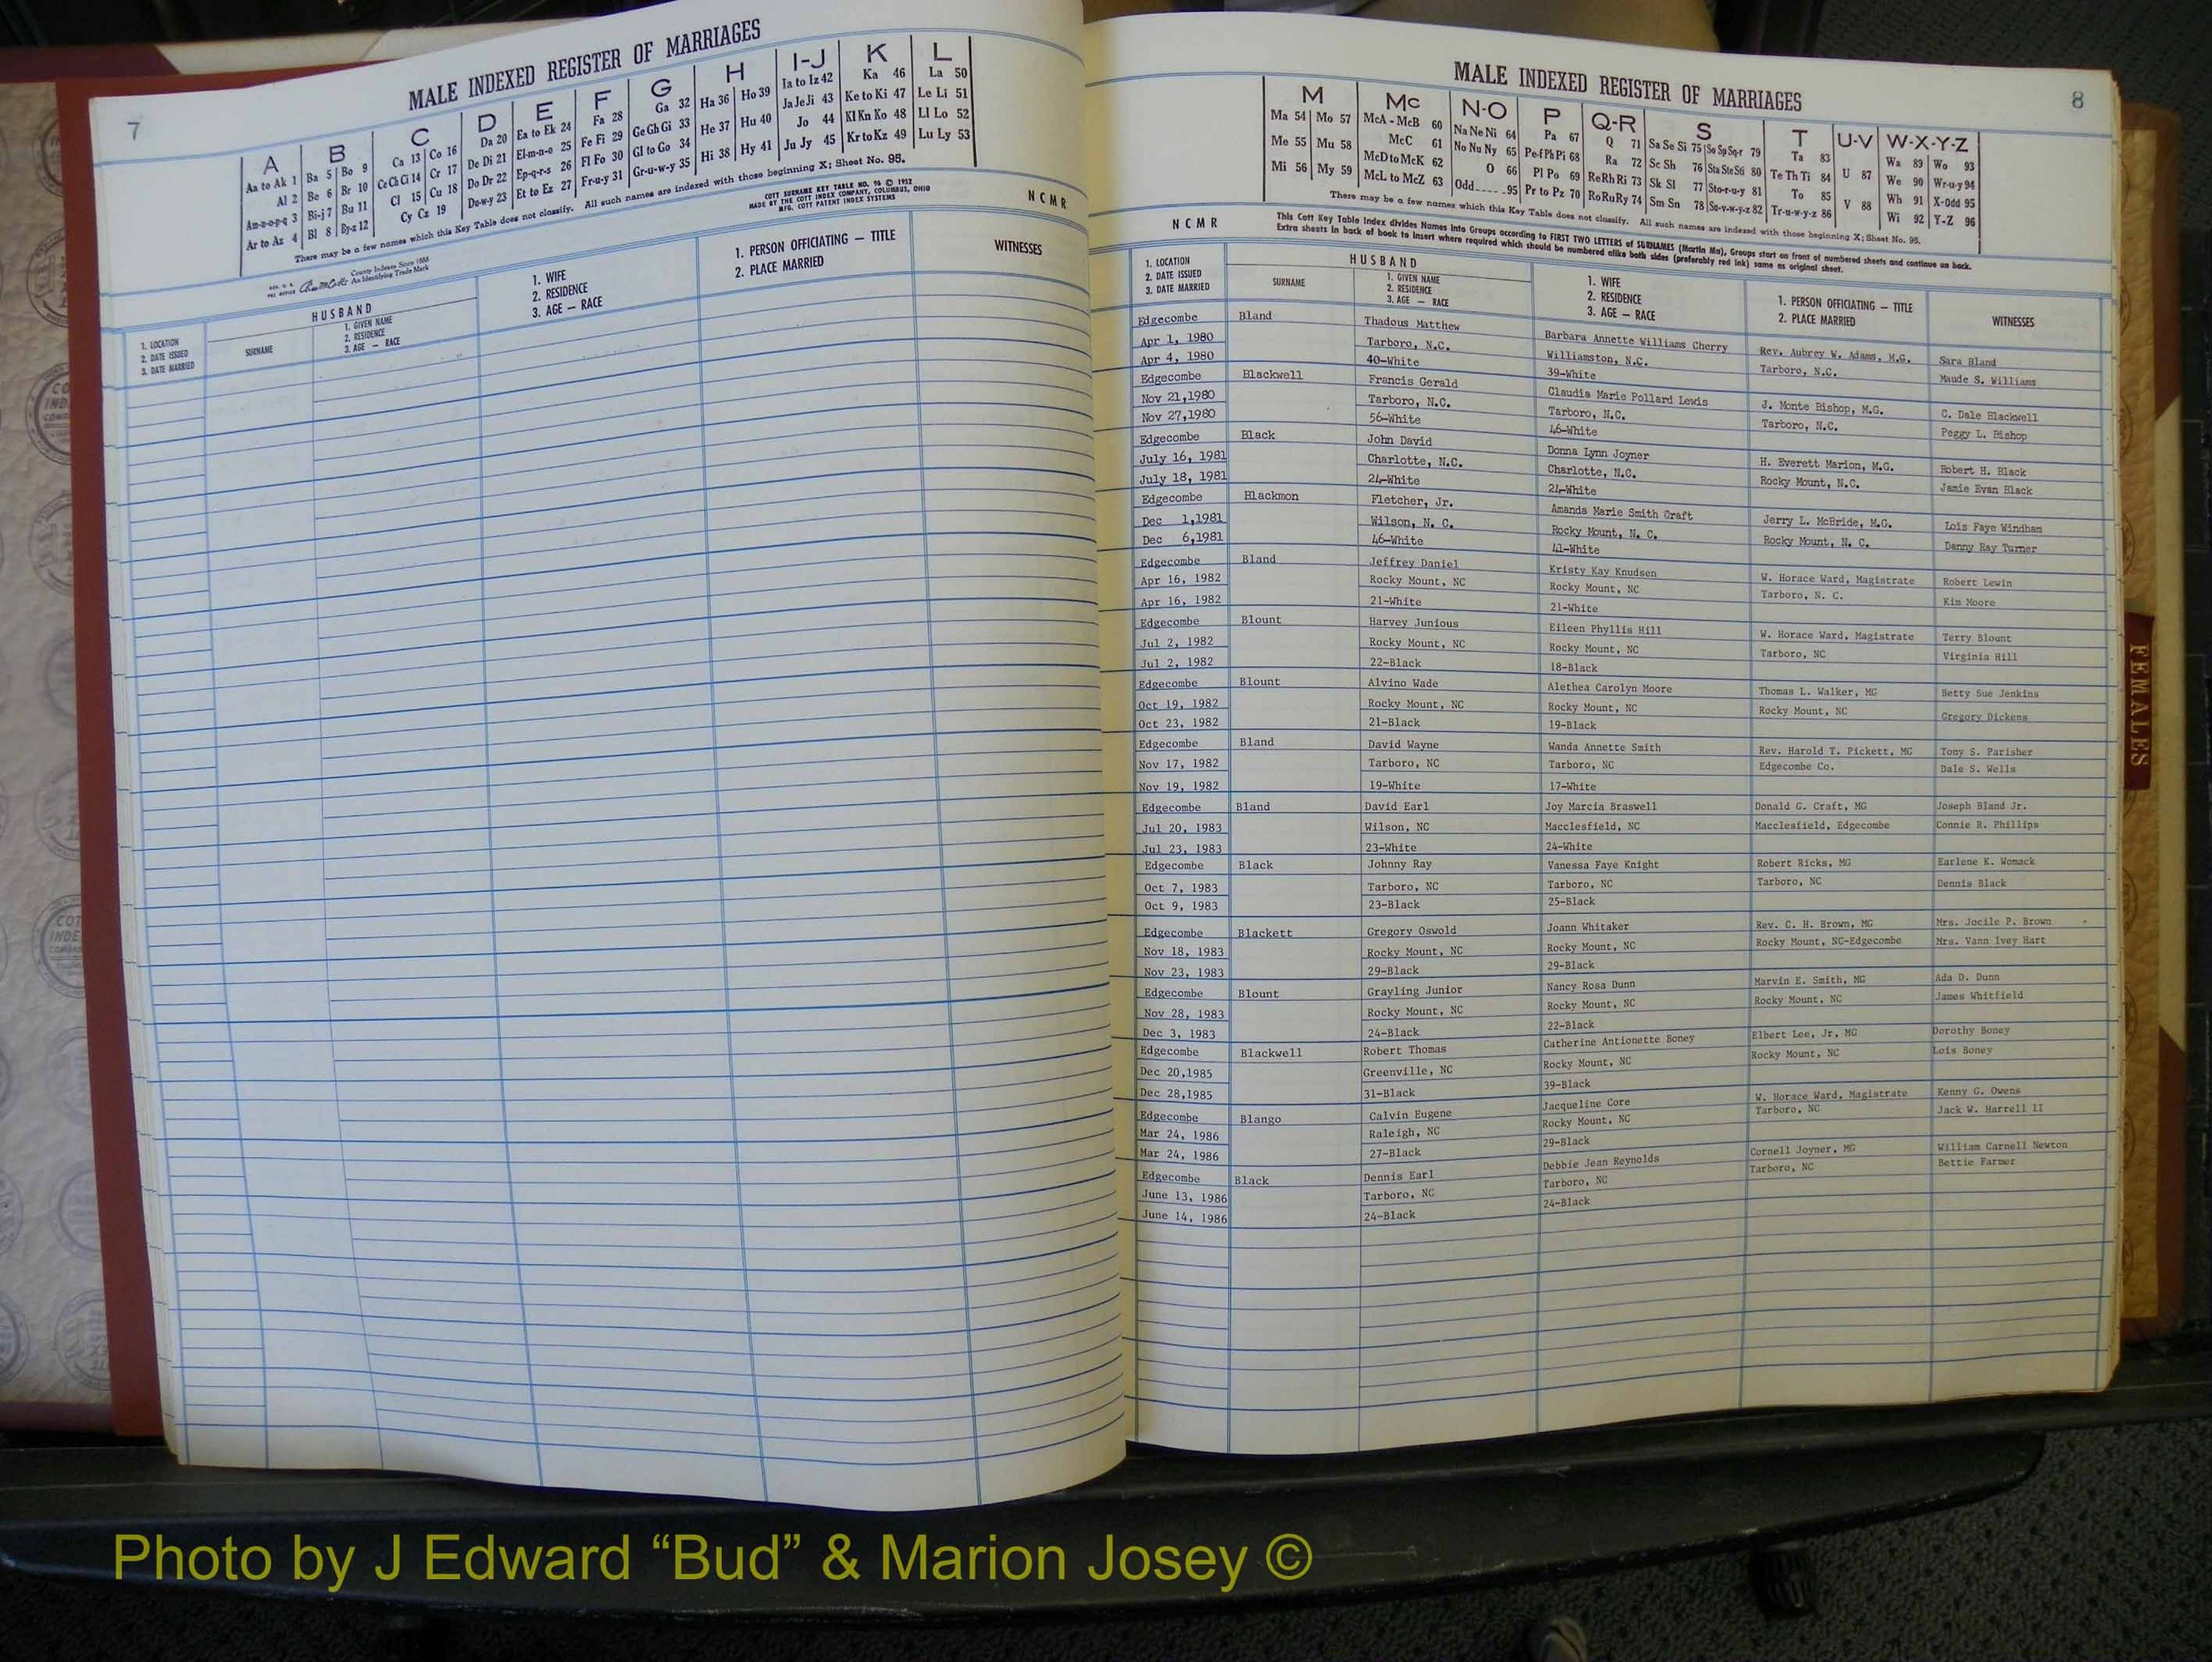 7
MALE INDEXED REGISTER OF MARRIAGES
A B C D E F G H I-J K L
Aa to Ak 1 Ba 5 Bo 9 Ca 13 Co 16 Da 20 Ea to Ek 24 Fa 28 Ga 32 Ha 36 Ho 39 Ia to Iz 42 Ka 46 La 50
Al 2 Be 6 Br 10 Ce Ch Ci 14 Cr 17 De Di 21 El-m-n-o 25 Fe Fi 29 Ge Gh Gi 33 He 37 Hu 40 Ja Je Ji 43 Ke to Ki 47 Le Li 51
Am-n-o-p-q 3 Bi-j 7 Bu 11 Cl 15 Cu 18 Do Dr 22 Ep-q-r-s 26 Fl Fo 30 Gl to Go 34 Hi 38 Hy 41 Jo 44 Kl Kn Ko 48 Ll Lo 52
Ar to Az 4 Bl 8 By-z 12 Cy Cz 19 Du-w-y 23 Et to Ez 27 Fr-u-y 31 Gr-u-w-y 35 Ju Jy 45 Kr to Kz 49 Lu Ly 53
There may be a few names which this Key Table does not classify. All such names are indexed with those beginning X; Sheet No. 95.
COTT SURNAME KEY TABLE NO. 96 © 1952
MADE BY THE COTT INDEX COMPANY, COLUMBUS, OHIO
MFG. COTT PATENT INDEX SYSTEMS
County Indexes Since 1888
An Identifying Trade Mark
N C M R
HUSBAND
1. LOCATION
2. DATE ISSUED
3. DATE MARRIED
SURNAME
1. GIVEN NAME
2. RESIDENCE
3. AGE — RACE
1. WIFE
2. RESIDENCE
3. AGE — RACE
1. PERSON OFFICIATING — TITLE
2. PLACE MARRIED
WITNESSES
MALE INDEXED REGISTER OF MARRIAGES
8
M Mc N-O P Q-R S T U-V W-X-Y-Z
Ma 54 Mo 57 McA - McB 60 Na Ne Ni 64 Pa 67 Q 71 Sa Se Si 75 So Sp Sq-r 79 Ta 83 U 87 Wa 89 Wo 93
Me 55 Mu 58 McC 61 No Nu Ny 65 Pe-f Ph Pi 68 Ra 72 Sc Sh 76 Sta Ste Sti 80 Te Th Ti 84 We 90 Wr-u-y 94
Mi 56 My 59 McD to McK 62 O 66 Pl Po 69 Re Rh Ri 73 Sk Sl 77 Sto-r-u-y 81 To 85 V 88 Wh 91 X-Odd 95
McL to McZ 63 Odd 95 Pr to Pz 70 Ro Ru Ry 74 Sm Sn 78 Su-v-w-y-z 82 Tr-u-w-y-z 86 Wi 92 Y-Z 96
There may be a few names which this Key Table does not classify. All such names are indexed with those beginning X; Sheet No. 95.
N C M R
This Cott Key Table Index divides Names into Groups according to FIRST TWO LETTERS of SURNAMES (Martin Ma), Groups start on front of numbered sheets and continue on back.
Extra sheets in back of book to insert where required which should be numbered alike both sides (preferably red ink) same as original sheet.
HUSBAND
1. LOCATION
2. DATE ISSUED
3. DATE MARRIED
SURNAME
1. GIVEN NAME
2. RESIDENCE
3. AGE — RACE
1. WIFE
2. RESIDENCE
3. AGE — RACE
1. PERSON OFFICIATING — TITLE
2. PLACE MARRIED
WITNESSES
Edgecombe Bland Thadous Matthew Barbara Annette Williams Cherry Rev. Aubrey W. Adams, M.G. Sara Bland
Apr 1, 1980 Tarboro, N.C. Williamston, N.C. Tarboro, N.C. Maude S. Williams
Apr 4, 1980 40-White 39-White
Edgecombe Blackwell Francis Gerald Claudia Marie Pollard Lewis J. Monte Bishop, M.G. C. Dale Blackwell
Nov 21,1980 Tarboro, N.C. Tarboro, N.C. Tarboro, N.C. Peggy L. Bishop
Nov 27,1980 56-White 46-White
Edgecombe Black John David Donna Lynn Joyner H. Everett Marion, M.G. Robert H. Black
July 16, 1981 Charlotte, N.C. Charlotte, N.C. Rocky Mount, N.C. Jamie Evan Black
July 18, 1981 24-White 24-White
Edgecombe Blackmon Fletcher, Jr. Amanda Marie Smith Craft Jerry L. McBride, M.G. Lois Faye Windham
Dec 1,1981 Wilson, N. C. Rocky Mount, N. C. Rocky Mount, N. C. Danny Ray Turner
Dec 6,1981 46-White 41-White
Edgecombe Bland Jeffrey Daniel Kristy Kay Knudsen W. Horace Ward, Magistrate Robert Lewin
Apr 16, 1982 Rocky Mount, NC Rocky Mount, NC Tarboro, N. C. Kim Moore
Apr 16, 1982 21-White 21-White
Edgecombe Blount Harvey Junious Eileen Phyllis Hill W. Horace Ward, Magistrate Terry Blount
Jul 2, 1982 Rocky Mount, NC Rocky Mount, NC Tarboro, NC Virginia Hill
Jul 2, 1982 22-Black 18-Black
Edgecombe Blount Alvino Wade Alethea Carolyn Moore Thomas L. Walker, MG Betty Sue Jenkins
Oct 19, 1982 Rocky Mount, NC Rocky Mount, NC Rocky Mount, NC Gregory Dickens
Oct 23, 1982 21-Black 19-Black
Edgecombe Bland David Wayne Wanda Annette Smith Rev. Harold T. Pickett, MG Tony S. Parisher
Nov 17, 1982 Tarboro, NC Tarboro, NC Edgecombe Co. Dale S. Wells
Nov 19, 1982 19-White 17-White
Edgecombe Bland David Earl Joy Marcia Braswell Donald G. Craft, MG Joseph Bland Jr.
Jul 20, 1983 Wilson, NC Macclesfield, NC Macclesfield, Edgecombe Connie R. Phillips
Jul 23, 1983 23-White 24-White
Edgecombe Black Johnny Ray Vanessa Faye Knight Robert Ricks, MG Earlene K. Womack
Oct 7, 1983 Tarboro, NC Tarboro, NC Tarboro, NC Dennis Black
Oct 9, 1983 23-Black 25-Black
Edgecombe Blackett Gregory Oswold Joann Whitaker Rev. C. H. Brown, MG Mrs. Jocile P. Brown
Nov 18, 1983 Rocky Mount, NC Rocky Mount, NC Rocky Mount, NC-Edgecombe Mrs. Vann Ivey Hart
Nov 23, 1983 29-Black 29-Black
Edgecombe Blount Grayling Junior Nancy Rosa Dunn Marvin E. Smith, MG Ada D. Dunn
Nov 28, 1983 Rocky Mount, NC Rocky Mount, NC Rocky Mount, NC James Whitfield
Dec 3, 1983 24-Black 22-Black
Edgecombe Blackwell Robert Thomas Catherine Antionette Boney Elbert Lee, Jr, MG Dorothy Boney
Dec 20,1985 Greenville, NC Rocky Mount, NC Rocky Mount, NC Lois Boney
Dec 28,1985 31-Black 39-Black
Edgecombe Blango Calvin Eugene Jacqueline Core W. Horace Ward, Magistrate Kenny G. Owens
Mar 24, 1986 Raleigh, NC Rocky Mount, NC Tarboro, NC Jack W. Harrell II
Mar 24, 1986 27-Black 29-Black
Edgecombe Black Dennis Earl Debbie Jean Reynolds Cornell Joyner, MG William Carnell Newton
June 13, 1986 Tarboro, NC Tarboro, NC Tarboro, NC Bettie Farmer
June 14, 1986 24-Black 24-Black
FEMALES
Photo by J Edward “Bud” & Marion Josey ©